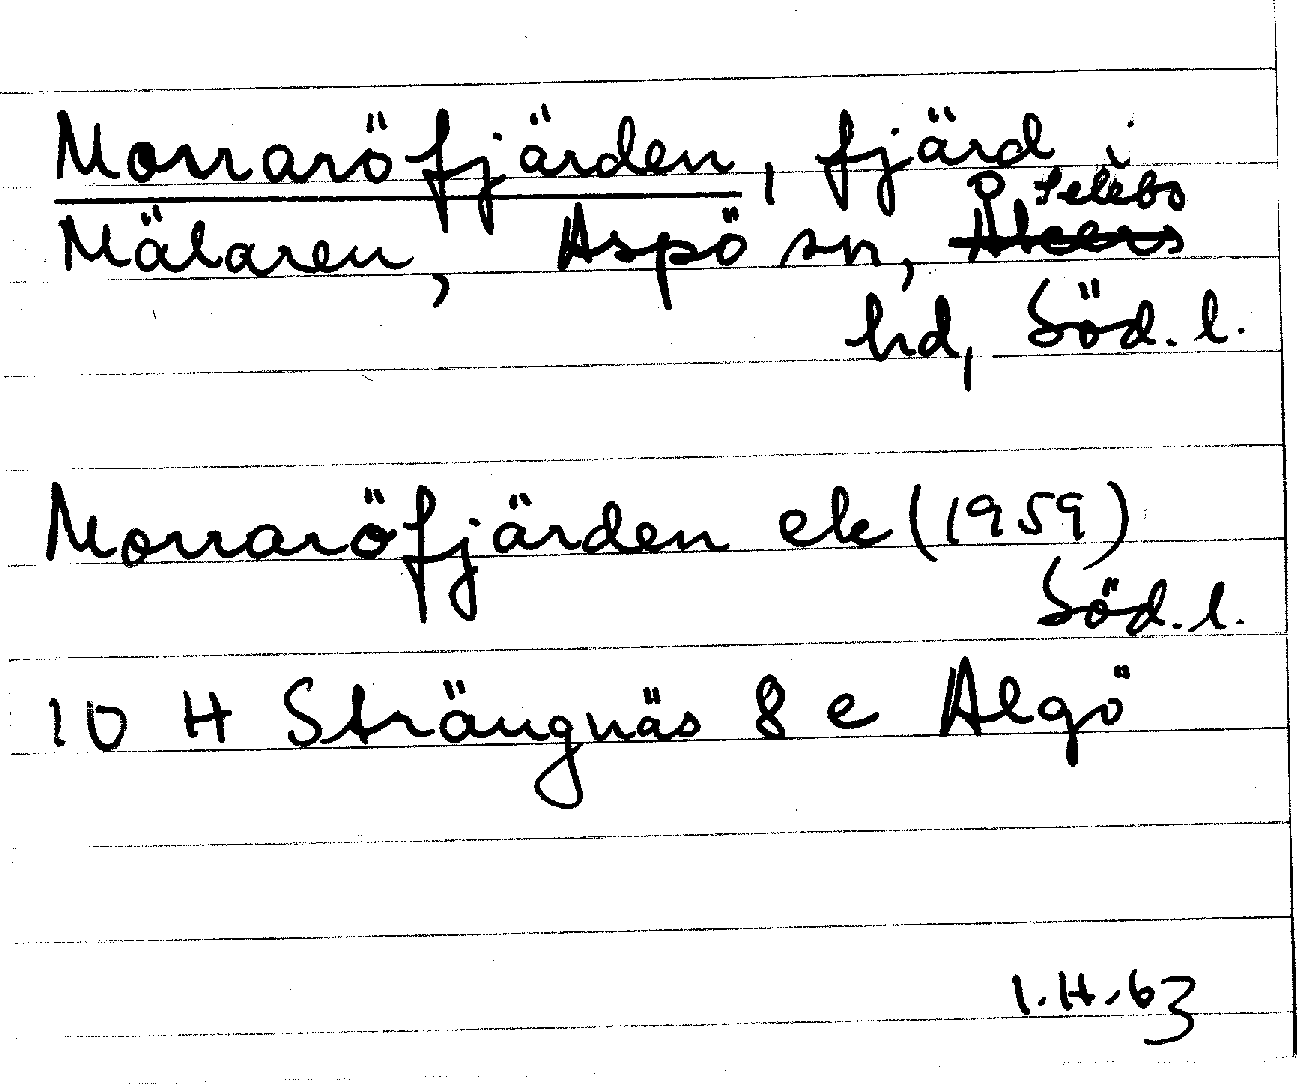 Morraröfjärden, fjärd i
Selebo
Mälaren, Aspö sn, Åkers
hd, Söd. l.
Morraröfjärden ek (1959)
Söd. l.
10 H Strängnäs 8 e Algö
I.H.63